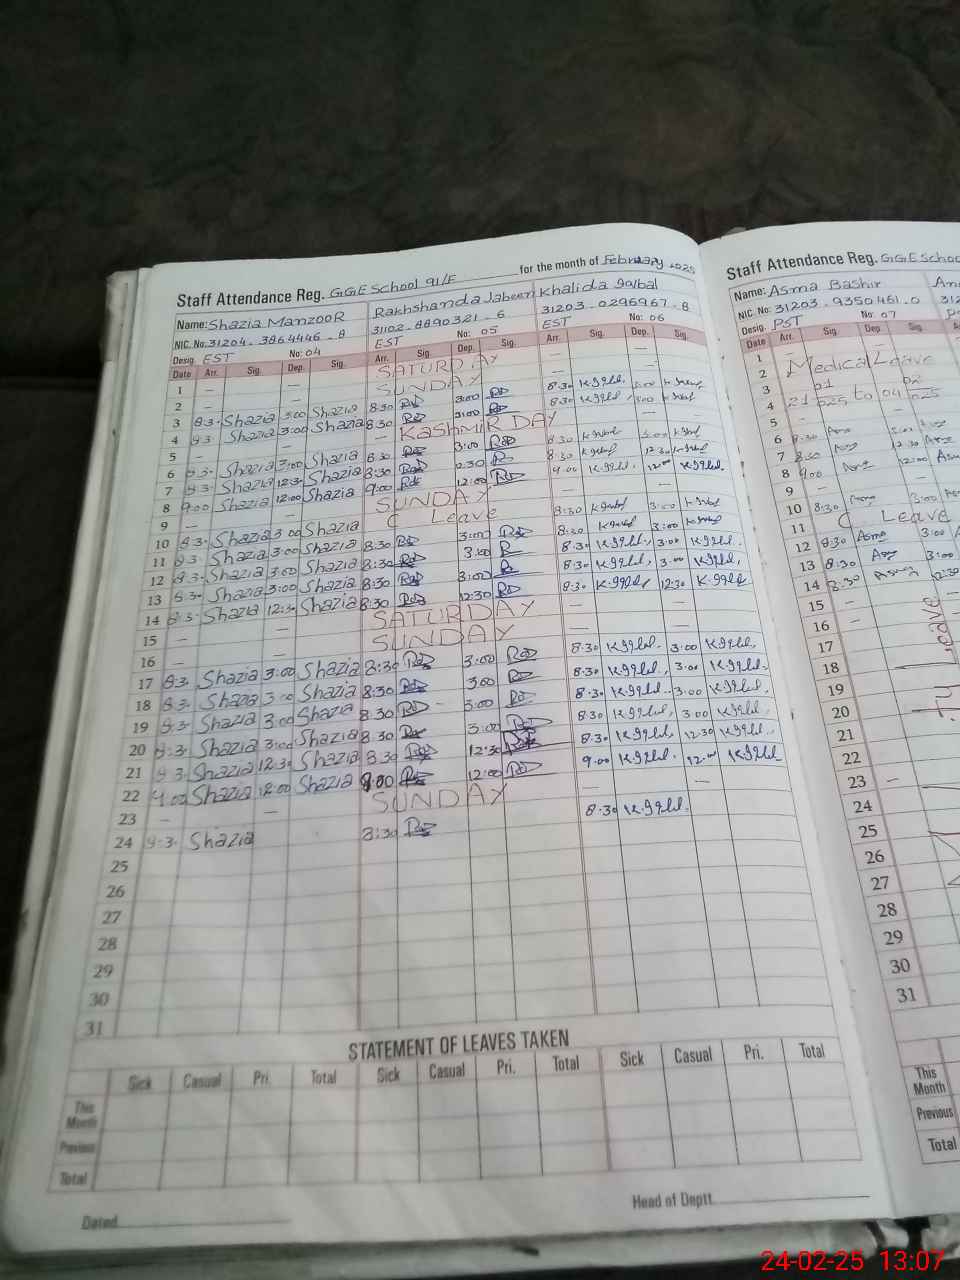 Staff Attendance Reg. GGE School 91/F for the month of February 2025
Name: Shazia Manzoor Rakhshanda Jabeen Khalida Iqbal
NIC. No. 31204-3864446-8 31102-8890321-6 31203-0296967-8
Desig. EST No: 04 EST No: 05 EST No: 06
Date Arr. Sig. Dep. Sig. Arr. Sig. Dep. Sig. Arr. Sig. Dep. Sig.
1 — — SATURDAY — —
2 — — SUNDAY — —
3 8:3. Shazia 3:00 Shazia 8:30 3:00 8:30 K.Iqbal 3:00 K.Iqbal
4 8:3. Shazia 3:00 Shazia 8:30 3:00 8:30 K.Iqbal 3:00 K.Iqbal
5 — — KASHMIR DAY — —
6 8:3. Shazia 3:00 Shazia 8:30 3:00 8:30 K.Iqbal 3:00 K.Iqbal
7 8:3. Shazia 12:3. Shazia 8:30 12:30 8:30 K.Iqbal 12:30 K.Iqbal
8 9:00 Shazia 12:00 Shazia 9:00 12:00 9:00 K.Iqbal. 12:00 K.Iqbal.
9 — — SUNDAY — —
10 8:3. Shazia 3:00 Shazia C Leave 8:30 K.Iqbal 3:00 K.Iqbal
11 8:3. Shazia 3:00 Shazia 8:30 3:00 8:30 K.Iqbal 3:00 K.Iqbal
12 8:3. Shazia 3:00 Shazia 8:30 3:00 8:30 K.Iqbal. 3:00 K.Iqbal.
13 8:3. Shazia 3:00 Shazia 8:30 3:00 8:30 K.Iqbal. 3:00 K.Iqbal.
14 8:3. Shazia 12:3. Shazia 8:30 12:30 8:30 K.Iqbal 12:30 K.Iqbal
15 — — SATURDAY — —
16 — — SUNDAY — —
17 8:3. Shazia 3:00 Shazia 8:30 3:00 8:30 K.Iqbal. 3:00 K.Iqbal.
18 8:3. Shazia 3:00 Shazia 8:30 3:00 8:30 K.Iqbal. 3:00 K.Iqbal.
19 8:3. Shazia 3:00 Shazia 8:30 3:00 8:30 K.Iqbal. 3:00 K.Iqbal.
20 8:3. Shazia 3:00 Shazia 8:30 3:00 8:30 K.Iqbal. 3:00 K.Iqbal.
21 8:3. Shazia 12:30 Shazia 8:30 12:30 8:30 K.Iqbal. 12:30 K.Iqbal.
22 9:00 Shazia 12:00 Shazia 9:00 12:00 9:00 K.Iqbal. 12:00 K.Iqbal
23 — — SUNDAY — —
24 8:3. Shazia 8:30 8:30 K.Iqbal.
25
26
27
28
29
30
31
STATEMENT OF LEAVES TAKEN
Sick Casual Pri. Total Sick Casual Pri. Total Sick Casual Pri. Total
This Month
Previous
Total
Dated Head of Deptt.
Staff Attendance Reg. GGE School
Name: Asma Bashir
NIC. No: 31203-9350461-0
Desig. PST No: 07
Date Arr. Sig. Dep. Sig.
1 —
2 Medical Leave
3
4 21 01 025 to 04 02 025
5 —
6 8:30 Asma 3:00
7 8:30 Asma 12:30 Asma
8 9:00 Asma 12:00 Asma
9 — —
10 8:30 Asma 3:00 Asma
11 C. Leave
12 8:30 Asma 3:00
13 8:30 Asma 3:00
14 8:30 Asma 12:30
15 — —
16 — —
17
18
19
20
21
22
23 —
24
25
26
27
28
29
30
31
This Month
Previous
Total
24-02-25 13:07